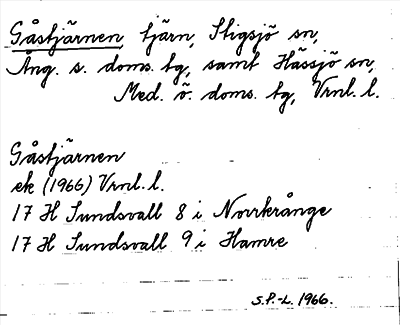 Gåstjärnen, tjärn, Stigsjö sn,
Ång. s. doms. tg, samt Hässjö sn,
Med. ö. doms. tg, Vrnl. l.
Gåstjärnen
ek (1966) Vrnl. l.
17 H Sundsvall 8 i Norrkrånge
17 H Sundsvall 9 i Hamre
S.P.-L. 1966.